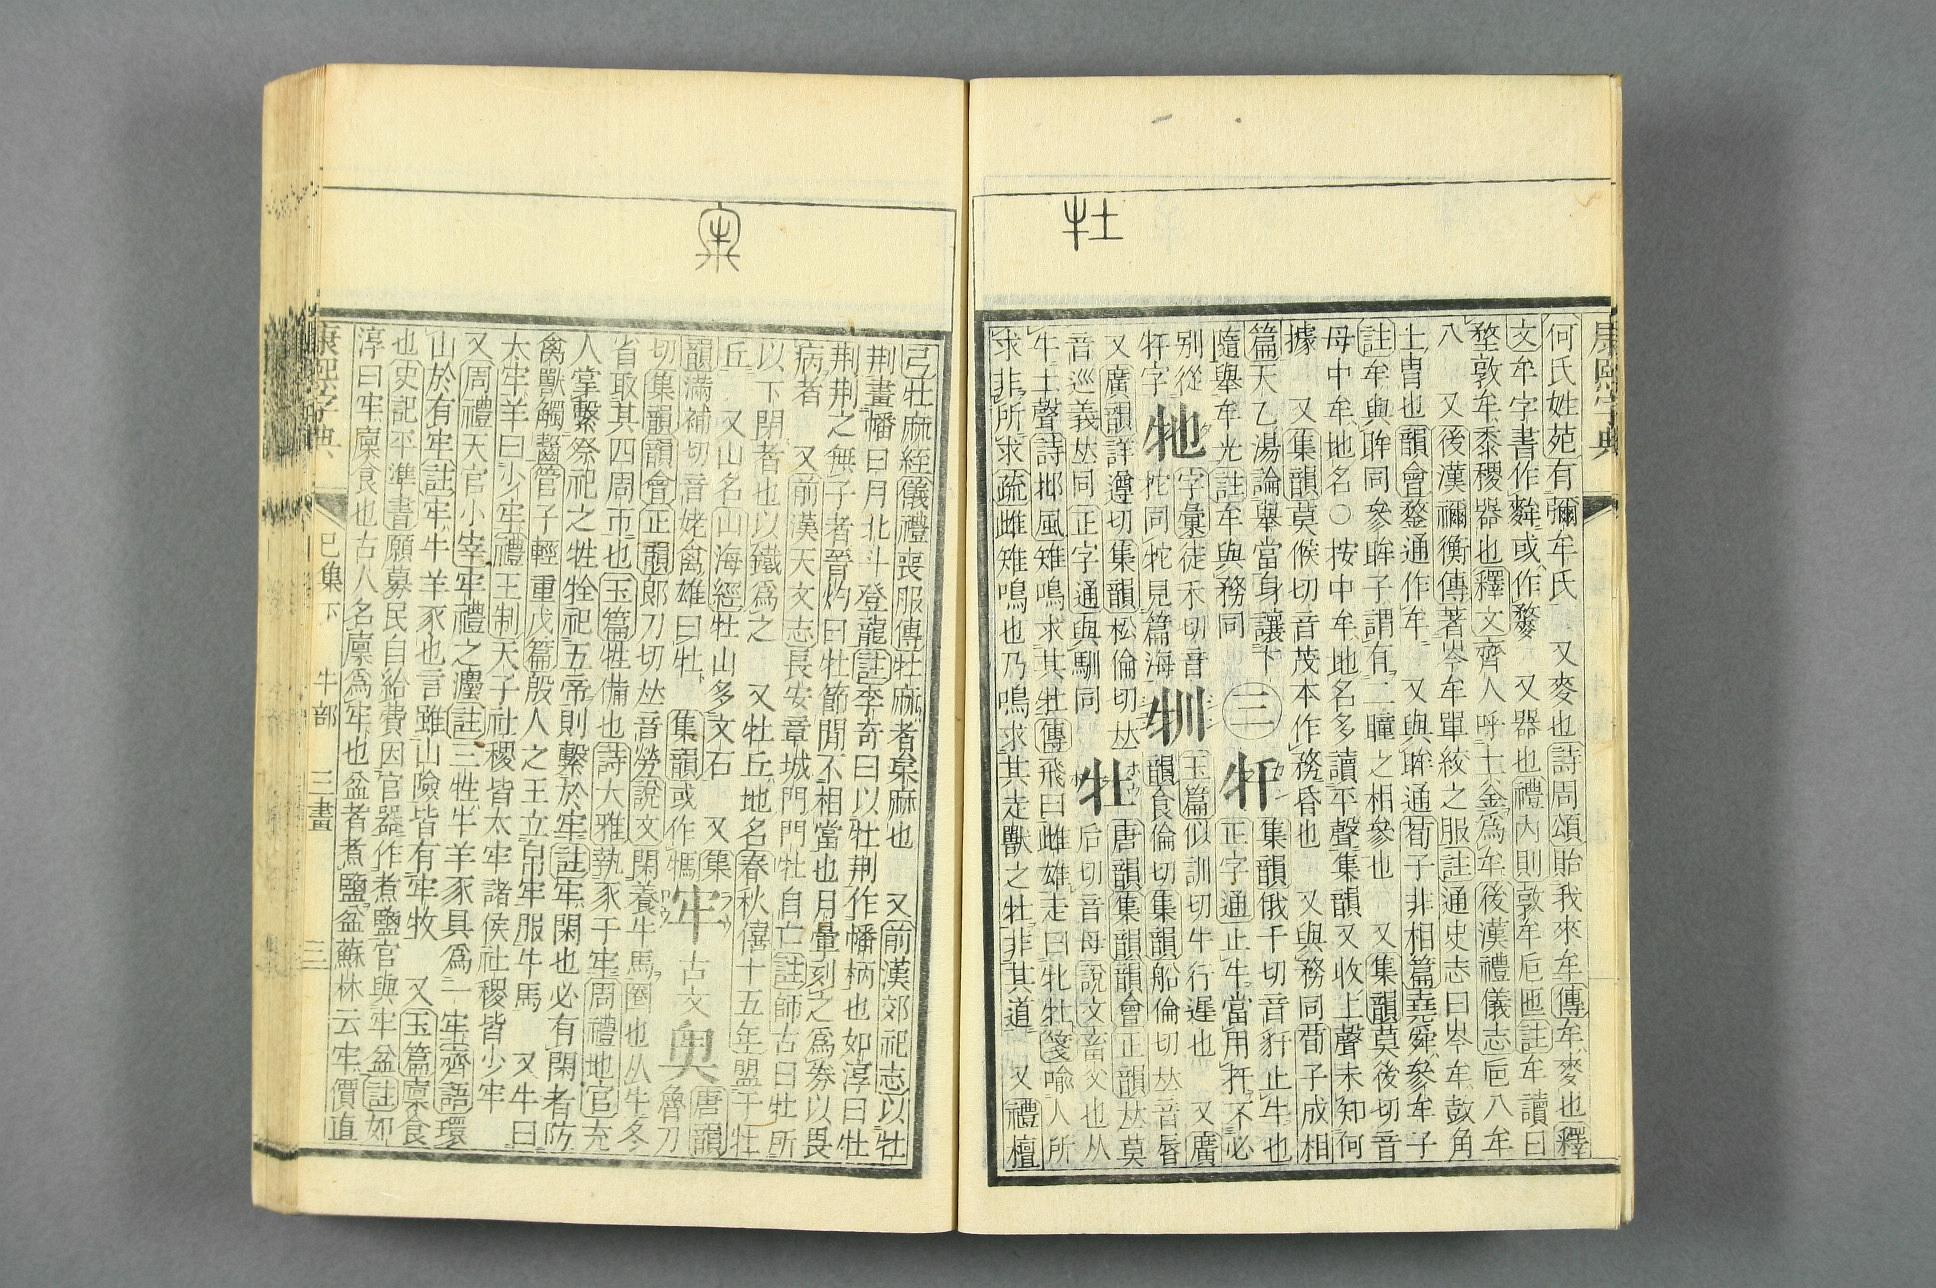 牡
何氏姓苑有彌牟氏　又麥也詩周頌貽我來牟傳牟麥也釋
文牟字書作麰或作䴦　又器也禮內則敦牟卮匜註牟讀曰
堥敦牟黍稷器也釋文齊人呼土釜爲牟後漢禮儀志卮八牟
八　又後漢禰衡傳著岑牟單絞之服註通史志曰岑牟鼓角
士胄也韻會鍪通作牟　又與眸通荀子非相篇堯舜參牟子
註牟與眸同參眸子謂有二瞳之相參也　又集韻莫後切音
母中牟地名○按中牟地名多讀平聲集韻又收上聲未知何
據　又集韻莫候切音茂本作務昏也　又與務同荀子成相
篇天乙湯論舉當身讓卞
隨舉牟光註牟與務同
三
牪字
別從
牠
牠同牠見篇海
字彙徒禾切音
玉篇似訓切牛行遲也　又廣
韻食倫切集韻船倫切𠀤音脣
又廣韻詳遵切集韻松倫切𠀤
音巡義𠀤同正字通與馴同
牡
唐韻集韻韻會正韻𠀤莫
后切音母說文畜父也从
牛土聲詩邶風雉鳴求其牡傳飛曰雌雄走曰牝牡箋喻人所
求非所求疏雌雉鳴也乃鳴求其走獸之牡非其道　又禮檀
弓牡麻絰儀禮喪服傳牡麻者枲麻也　又前漢郊祀志以牡
荆畫幡日月北斗登龍註李奇曰以牡荆作幡柄也如淳曰牡
荆荆之無子者晉灼曰牡節閒不相當也月暈刻之爲劵以畏
病者　又前漢天文志長安章城門門牡自亡註師古曰牡所
以下閉者也以鐵爲之　又牡丘地名春秋僖十五年盟于牡
丘　又山名山海經牡山多文石　又集
韻滿補切音姥禽雄曰牡　集韻或作𤚥
牢
古文
唐韻魯刀
切集韻韻會正韻郞刀切𠀤音勞說文閑養牛馬圈也从牛冬
省取其四周帀也玉篇牲備也詩大雅執豕于牢周禮地官充
人掌繫祭祀之牲牷祀五帝則繫於牢註牢閑也必有閑者防
禽獸觸齧管子輕重戊篇殷人之王立帛牢服牛馬　又牛曰
太牢羊曰少牢禮王制天子社稷皆太牢諸侯社稷皆少牢
又周禮天官小宰牢禮之灋註三牲牛羊豕具爲一牢齊語環
山於有牢註牢牛羊豕也言雖山險皆有牢牧　又玉篇廩食
也史記平準書願募民自給費因官器作煮鹽官與牢盆註如
淳曰牢廩食也古人名廩爲牢也盆者煮鹽盆蘇林云牢價直
康熙字典　巳集下　牛部　三畫　三